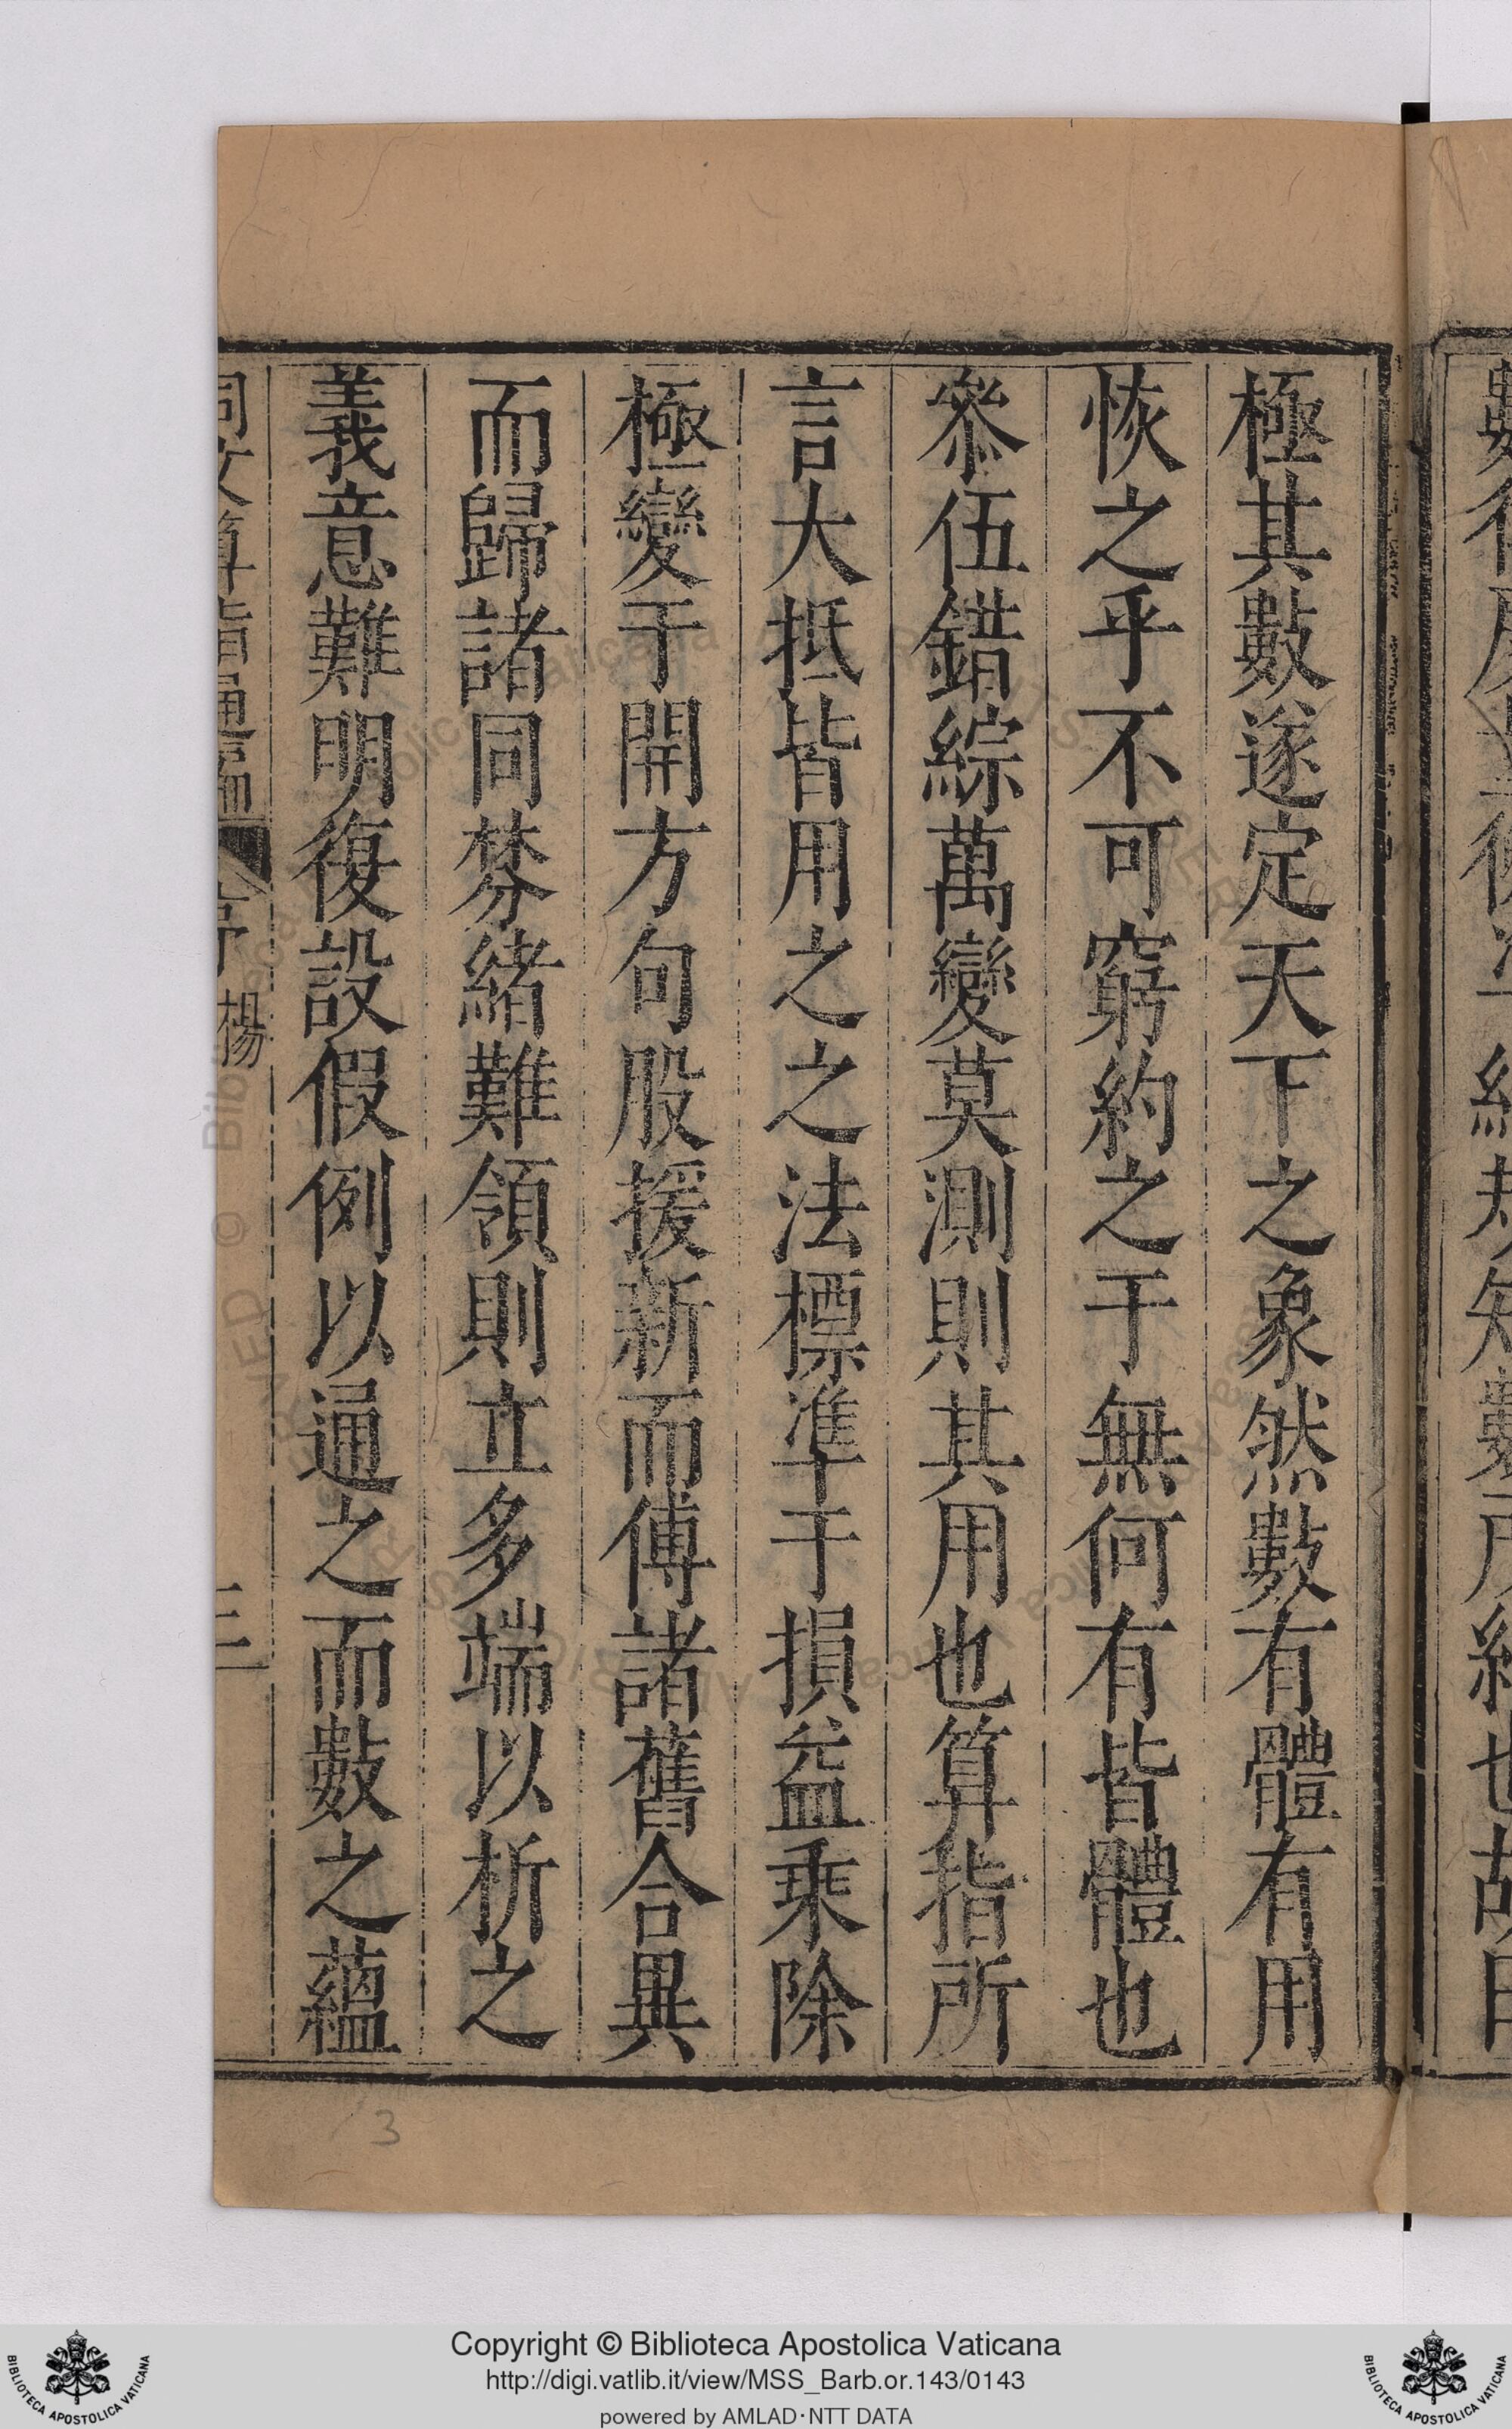 極其數遂定天下之象然數有體有用
恢之乎不可窮約之于無何有皆體也
叅伍錯綜萬變莫測則其用也算指所
言大抵皆用之之法標準于損益乘除
極變于開方句股援新而傅諸舊合異
而歸諸同棼緒難領則立多端以析之
義意難明復設假例以通之而數之蘊
同文算指通編 序 楊 三
3
Copyright © Biblioteca Apostolica Vaticana
http://digi.vatlib.it/view/MSS_Barb.or.143/0143
powered by AMLAD·NTT DATA
BIBLIOTECA APOSTOLICA VATICANA
BIBLIOTECA APOSTOLICA VATICANA